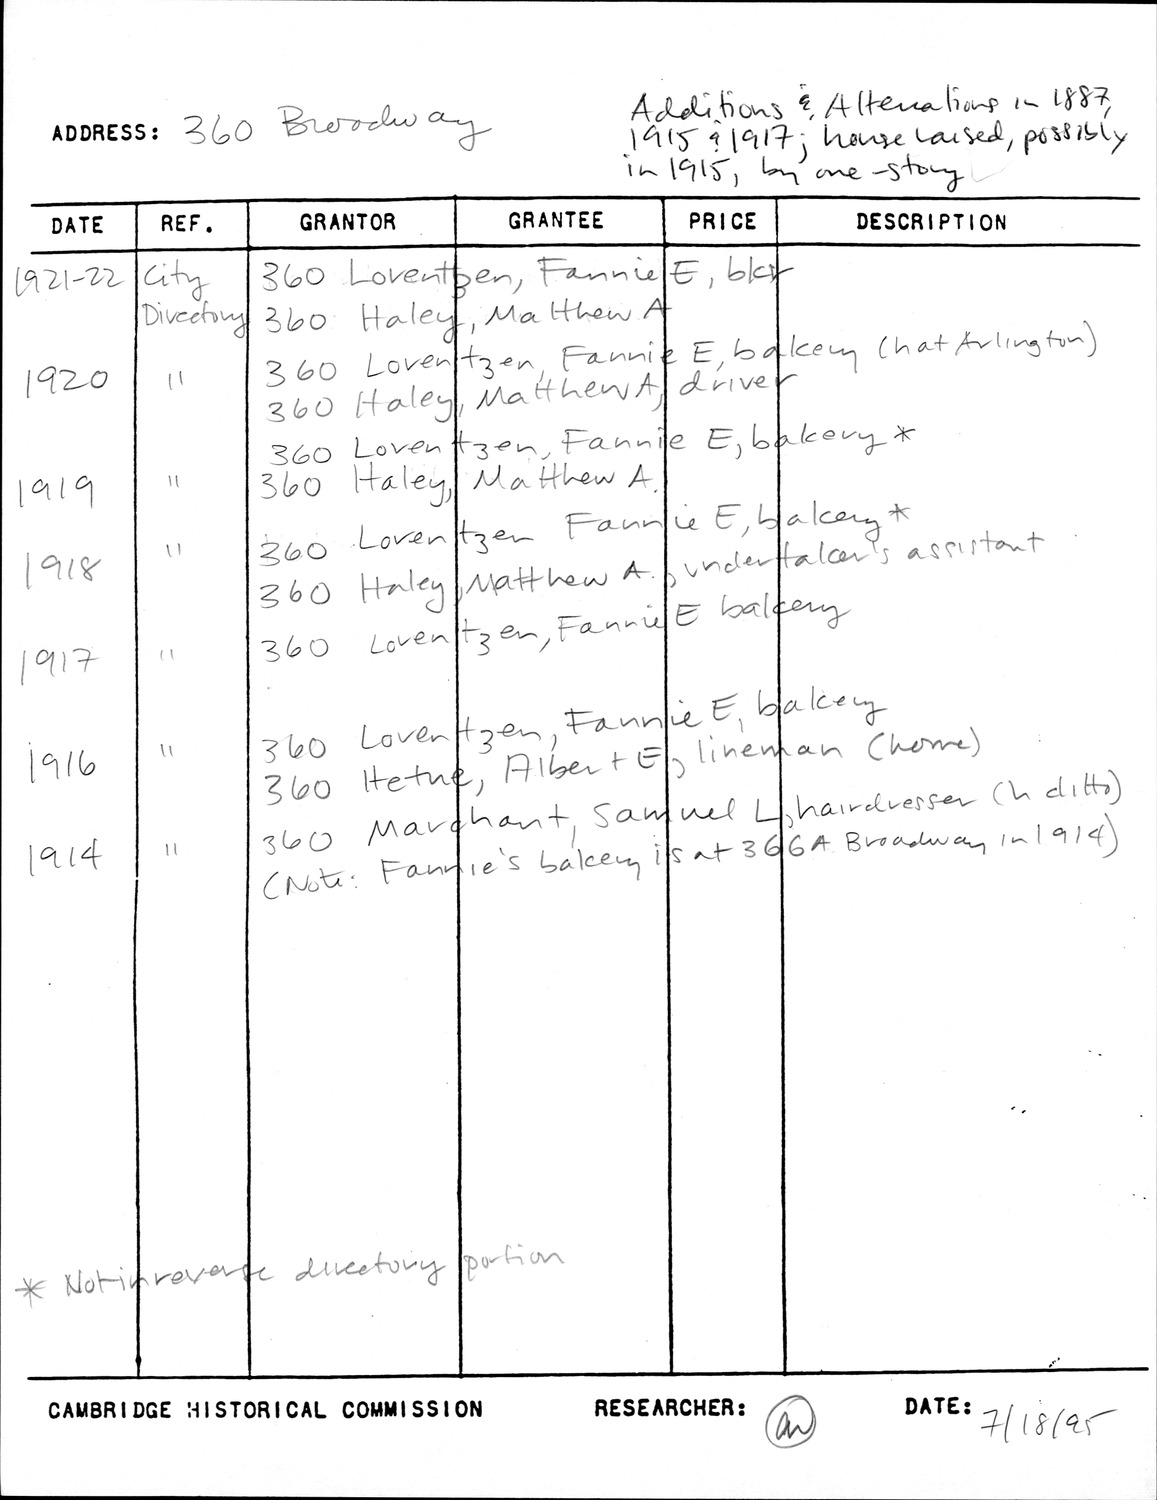 ADDRESS: 360 Broadway
Additions & Alterations in 1887,
1915 & 1917; house raised, possibly
in 1915, by one-story
DATE REF. GRANTOR GRANTEE PRICE DESCRIPTION
1921-22 City 360 Loventzen, Fannie E, bkr
Directory 360 Haley, Matthew A
360 Loventzen, Fannie E, bakery (h at Arlington)
1920 " 360 Haley, Matthew A, driver
360 Loventzen, Fannie E, bakery *
1919 " 360 Haley, Matthew A.
360 Loventzen Fannie E, bakery *
1918 " 360 Haley, Matthew A., undertaker's assistant
1917 " 360 Loventzen, Fannie E bakery
360 Loventzen, Fannie E, bakery
1916 " 360 Hetue, Albert E, lineman (home)
1914 " 360 Marchant, Samuel L, hairdresser (h ditto)
(Note: Fannie's bakery is at 366A Broadway in 1914)
* Not in reverse directory portion
CAMBRIDGE HISTORICAL COMMISSION RESEARCHER: DATE: 7/18/95